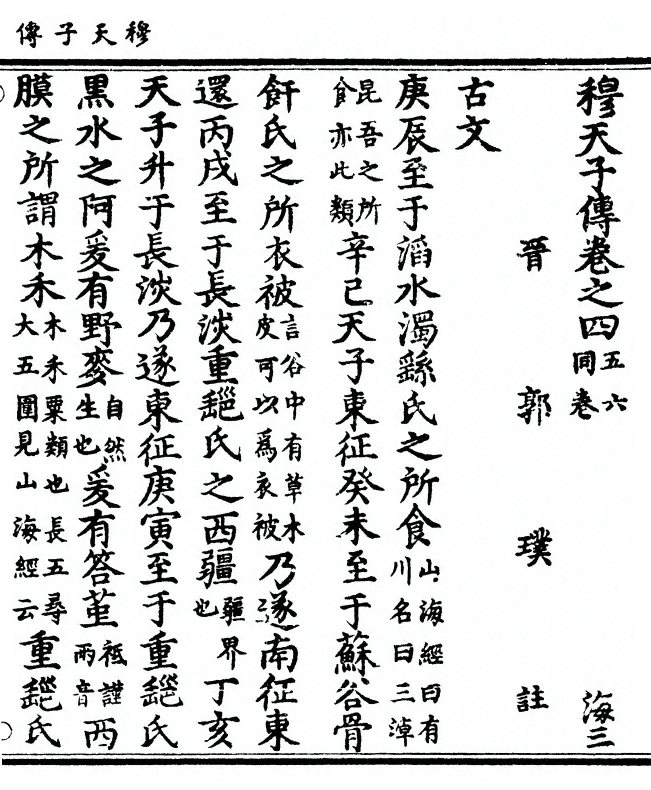 穆天子傳
穆天子傳卷之四五六同卷 海三
晉 郭 璞 註
古文
庚辰至于滔水濁繇氏之所食山海經曰有川名曰三淖
昆吾之所食亦此類辛巳天子東征癸未至于蘇谷骨
飦氏之所衣被言谷中有草木皮可以爲衣被乃遂南征東
還丙戌至于長淡重䣝氏之西疆疆界也丁亥
天子升于長淡乃遂東征庚寅至于重䣝氏
黑水之阿爰有野麥自然生也爰有答堇祗謹兩音西
膜之所謂木禾木禾粟類也長五尋大五圍見山海經云重䣝氏